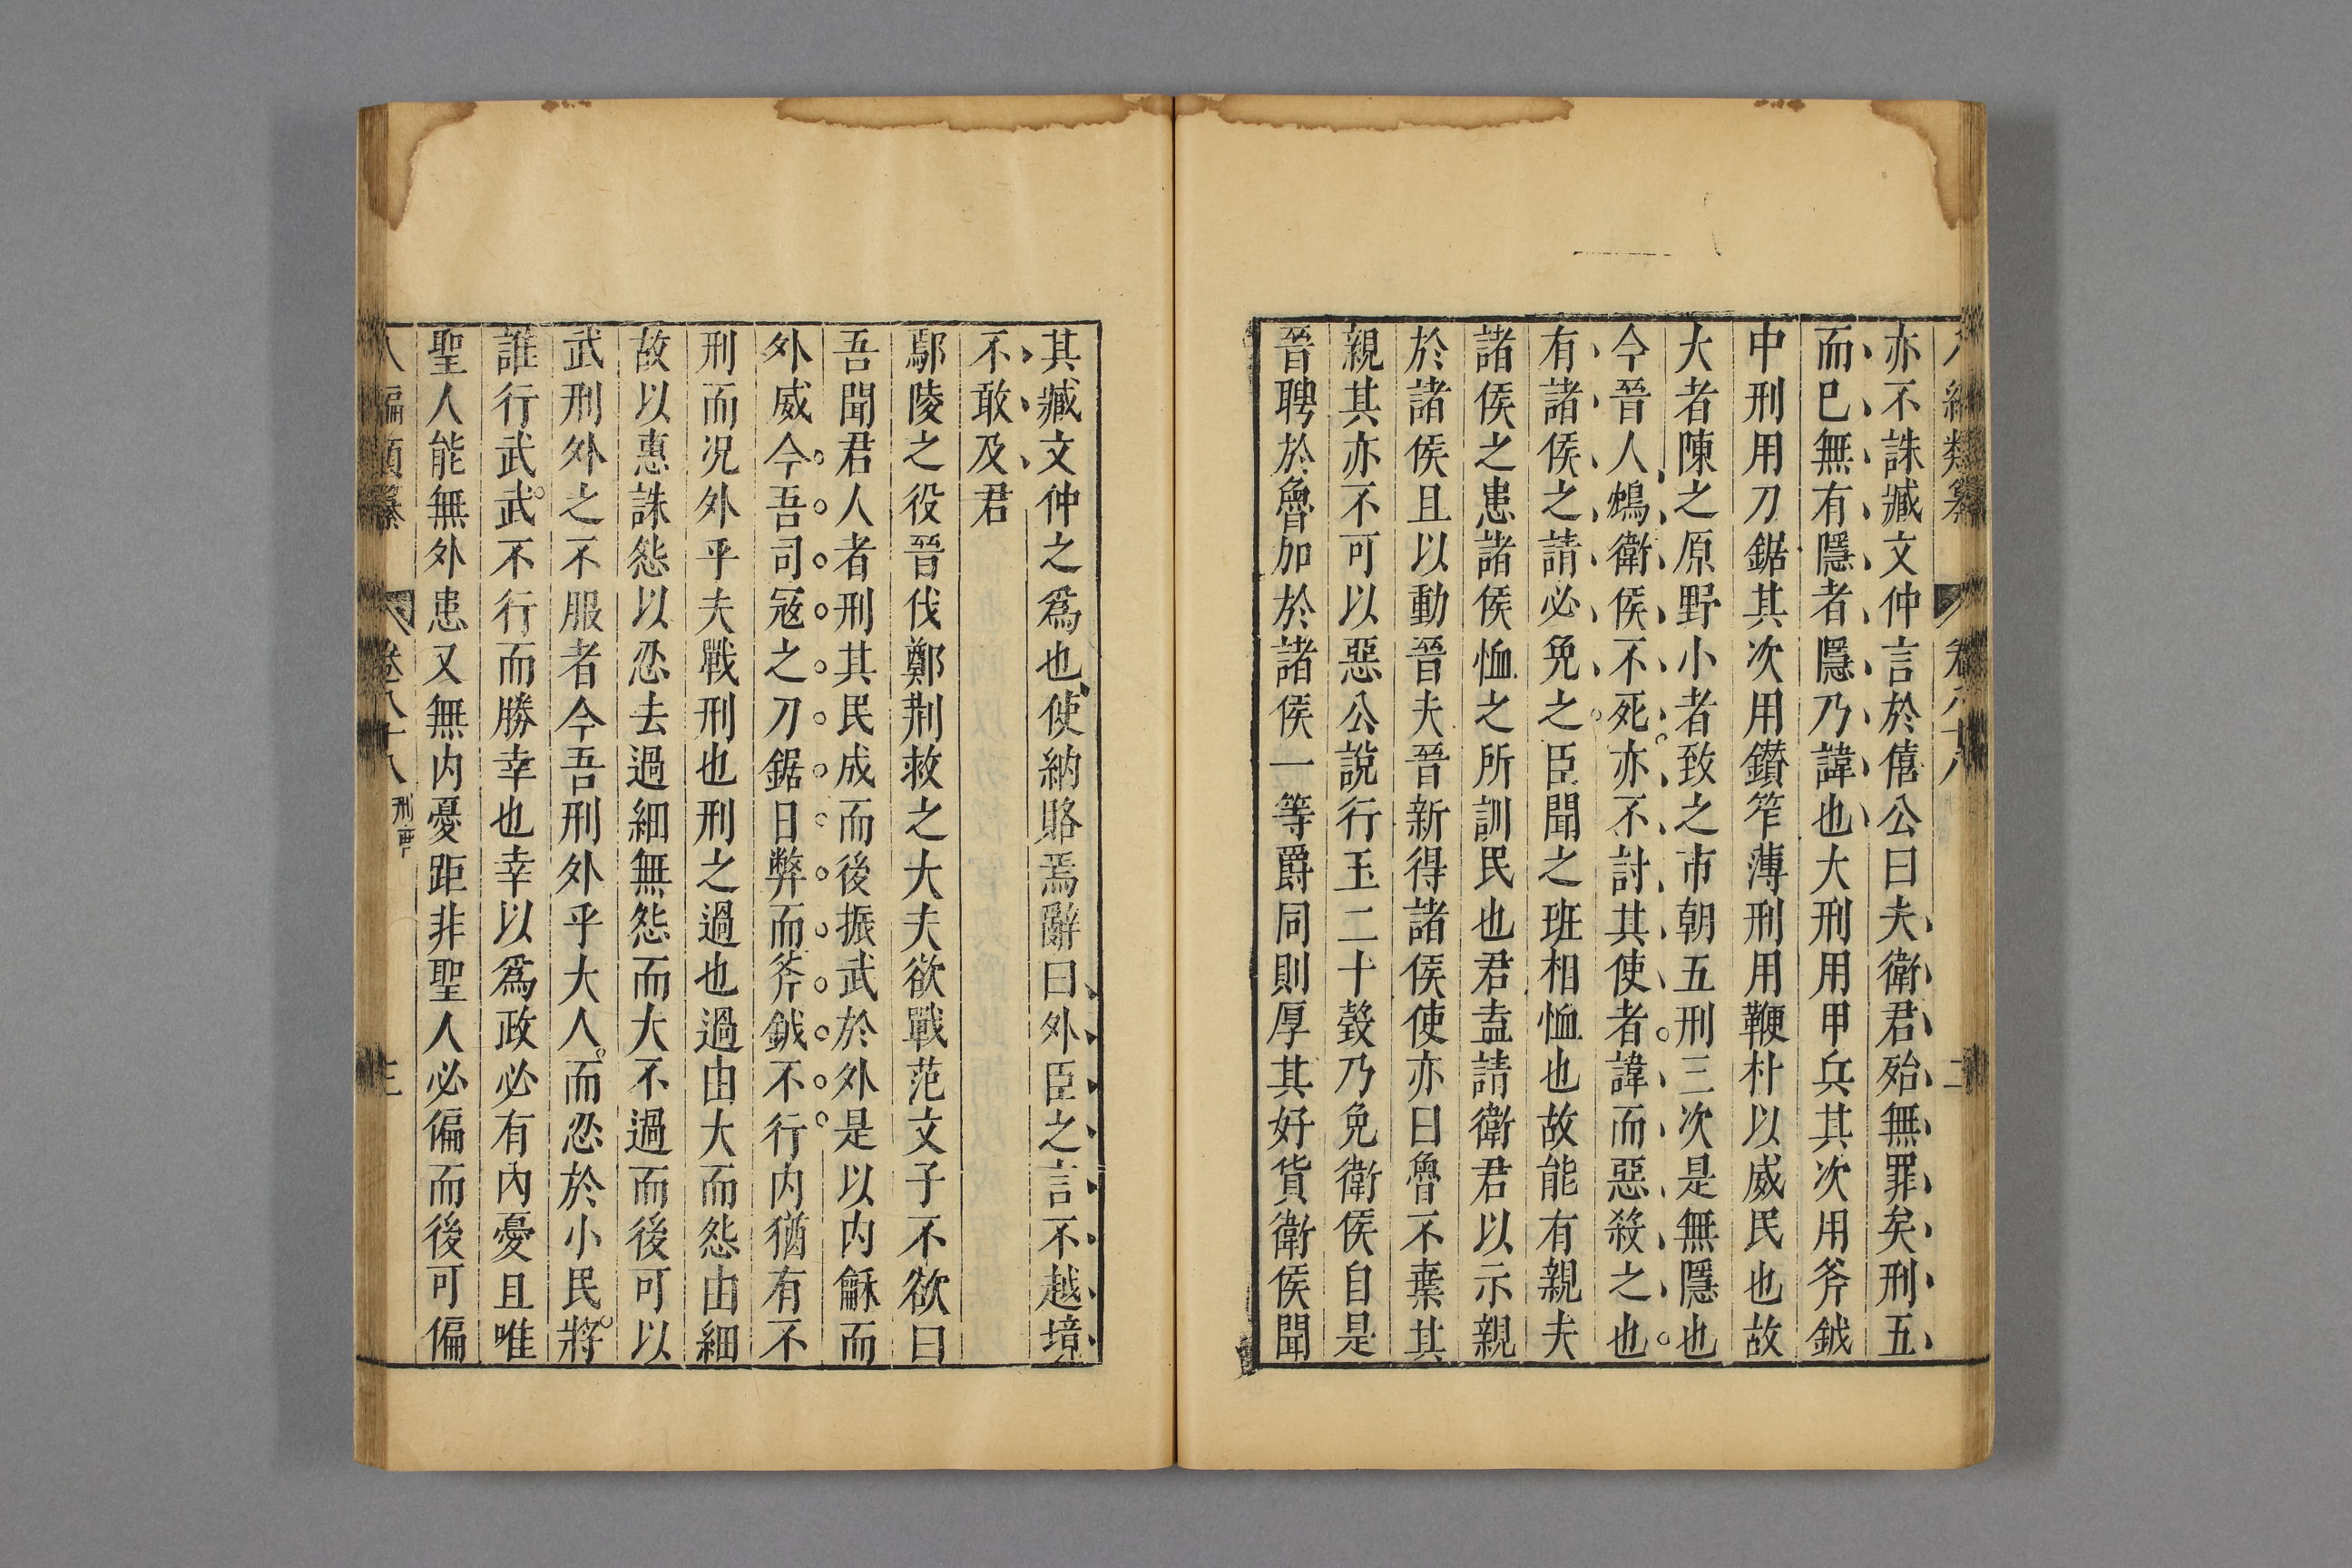 亦不誅臧文仲言於僖公曰夫衛君殆無罪矣刑五
而已無有隱者隱乃諱也大刑用甲兵其次用斧鉞
中刑用刀鋸其次用鑽笮薄刑用鞭朴以威民也故
大者陳之原野小者致之市朝五刑三次是無隱也
今晉人鴆衛侯不死亦不討其使者諱而惡殺之也
有諸侯之請必免之臣聞之班相恤也故能有親夫
諸侯之患諸侯恤之所訓民也君盍請衛君以示親
於諸侯且以動晉夫晉新得諸侯使亦曰魯不棄其
親其亦不可以惡公說行玉二十瑴乃免衛侯自是
晉聘於魯加於諸侯一等爵同則厚其好貨衛侯聞
其臧文仲之爲也使納賂焉辭曰外臣之言不越境
不敢及君
鄢陵之役晉伐鄭荆救之大夫欲戰范文子不欲曰
吾聞君人者刑其民成而後振武於外是以内龢而
外威今吾司寇之刀鋸日弊而斧鉞不行内猶有不
刑而况外乎夫戰刑也刑之過也過由大而怨由細
故以惠誅怨以忍去過細無怨而大不過而後可以
武刑外之不服者今吾刑外乎大人而忍於小民將
誰行武武不行而勝幸也幸以爲政必有内憂且唯
聖人能無外患又無内憂距非聖人必偏而後可偏
八編類纂 卷八十八 刑 三